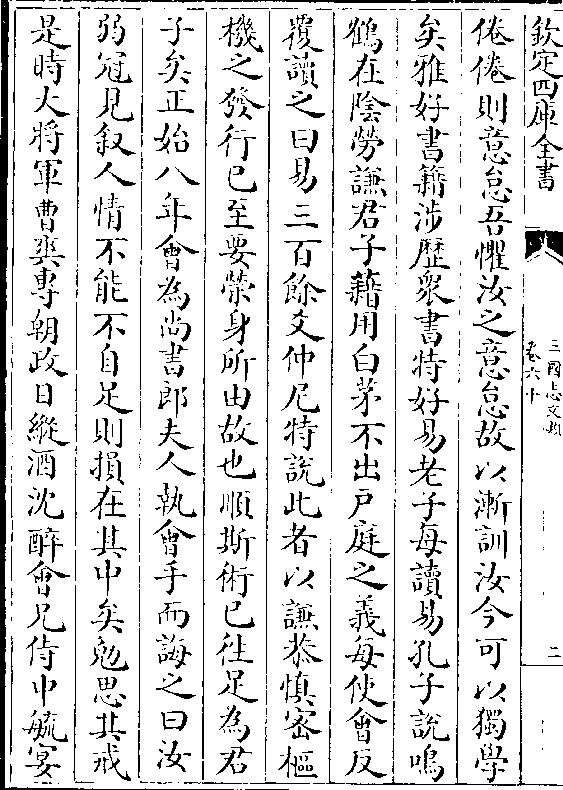 欽定四庫全書
三國志文類
卷六十
二
倦倦則意怠吾懼汝之意怠故以漸訓汝今可以獨學
矣雅好書籍涉歷衆書特好易老子每讀易孔子說鳴
鶴在陰勞謙君子藉用白茅不出戶庭之義每使會反
覆讀之曰易三百餘爻仲尼特說此者以謙恭慎密樞
機之發行已至要榮身所由故也順斯術已徃足為君
子矣正始八年會為尚書郎夫人執會手而誨之曰汝
弱冠見叙人情不能不自足則損在其中矣勉思其戒
是時大將軍曹爽專朝政日縱酒沈醉會兄侍中毓宴